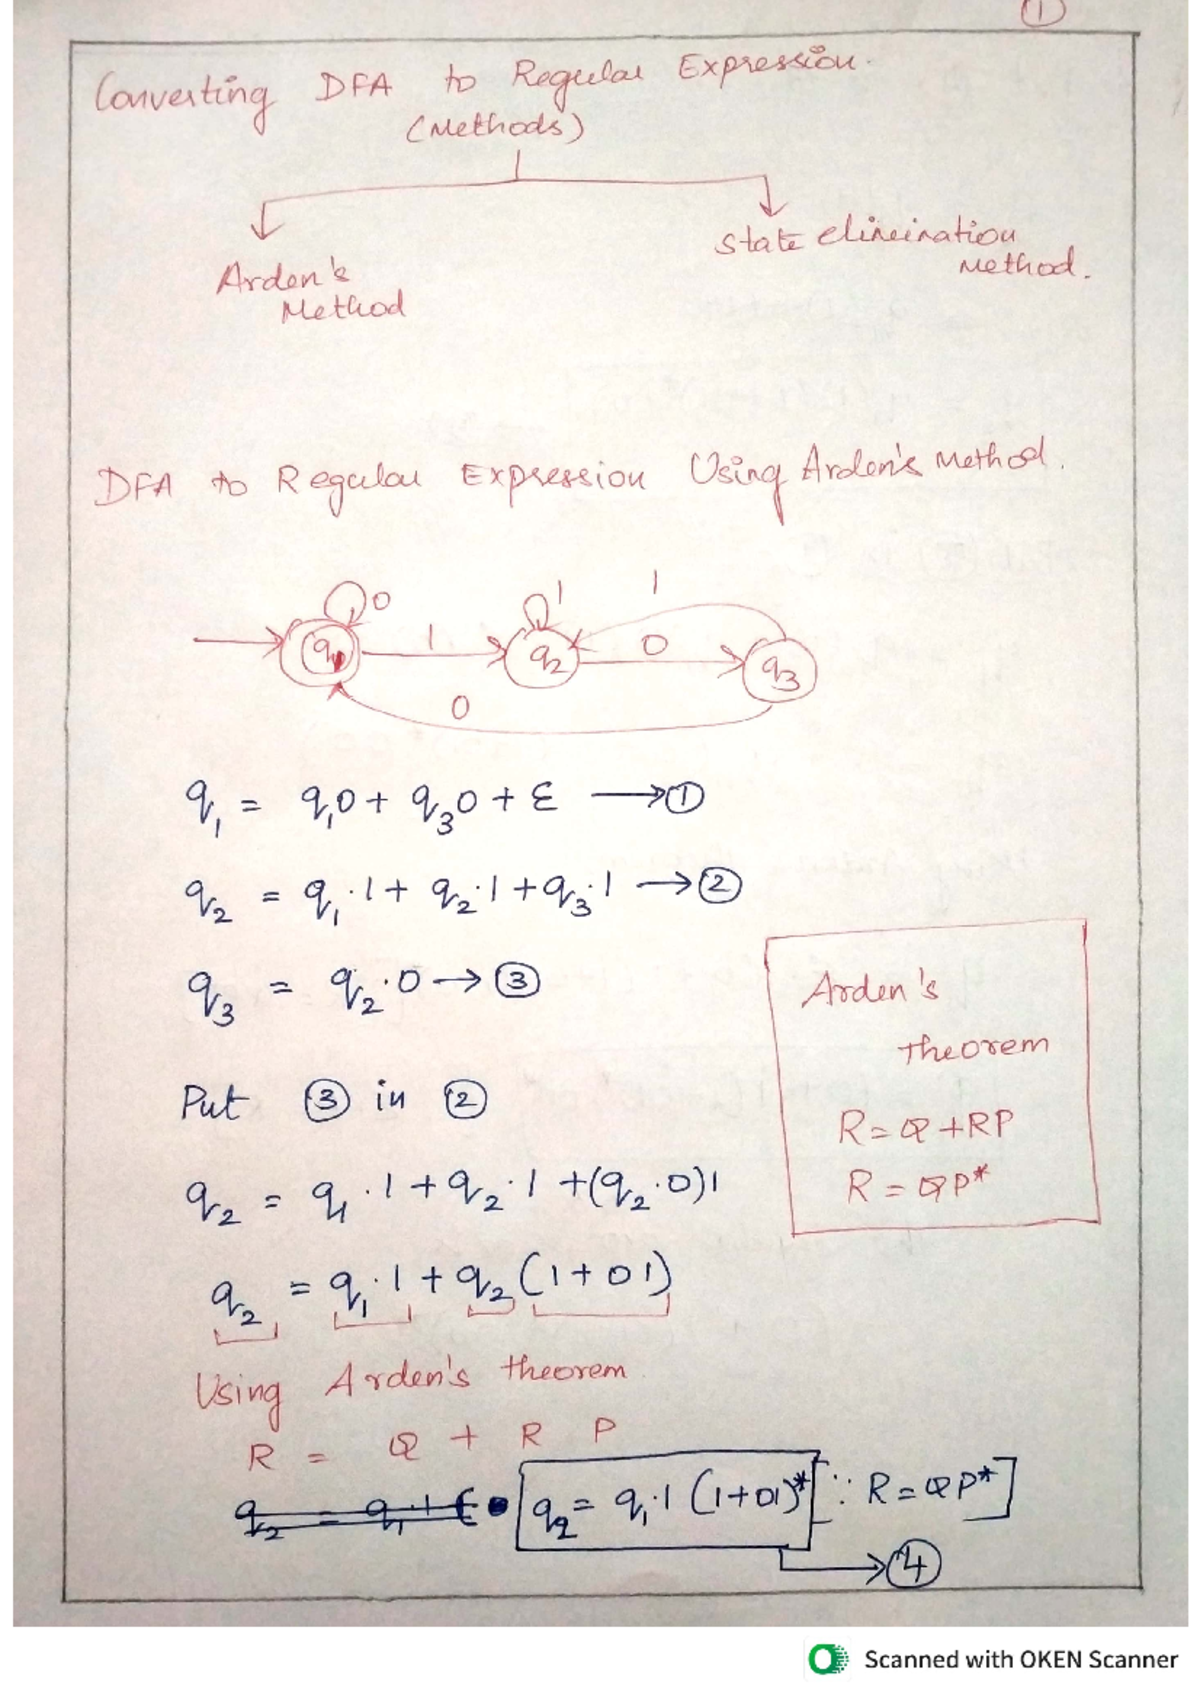 1
Converting DFA to Regular Expression.
(Methods)
Arden's Method
State elimination Method.
DFA to Regular Expression Using Arden's Method.
0 1 1
q1 1 q2 0 q3
0
q₁ = q₁0 + q₃0 + ε → ①
q₂ = q₁·1 + q₂·1 + q₃·1 → ②
q₃ = q₂·0 → ③
Arden's
theorem
R = Q + RP
R = QP*
Put ③ in ②
q₂ = q₁·1 + q₂·1 + (q₂·0)1
q₂ = q₁·1 + q₂(1+01)
Using Arden's theorem
R = Q + R P
q₂ = q₁·1 (1+01)* [∵ R = QP*]
→ ④
Scanned with OKEN Scanner